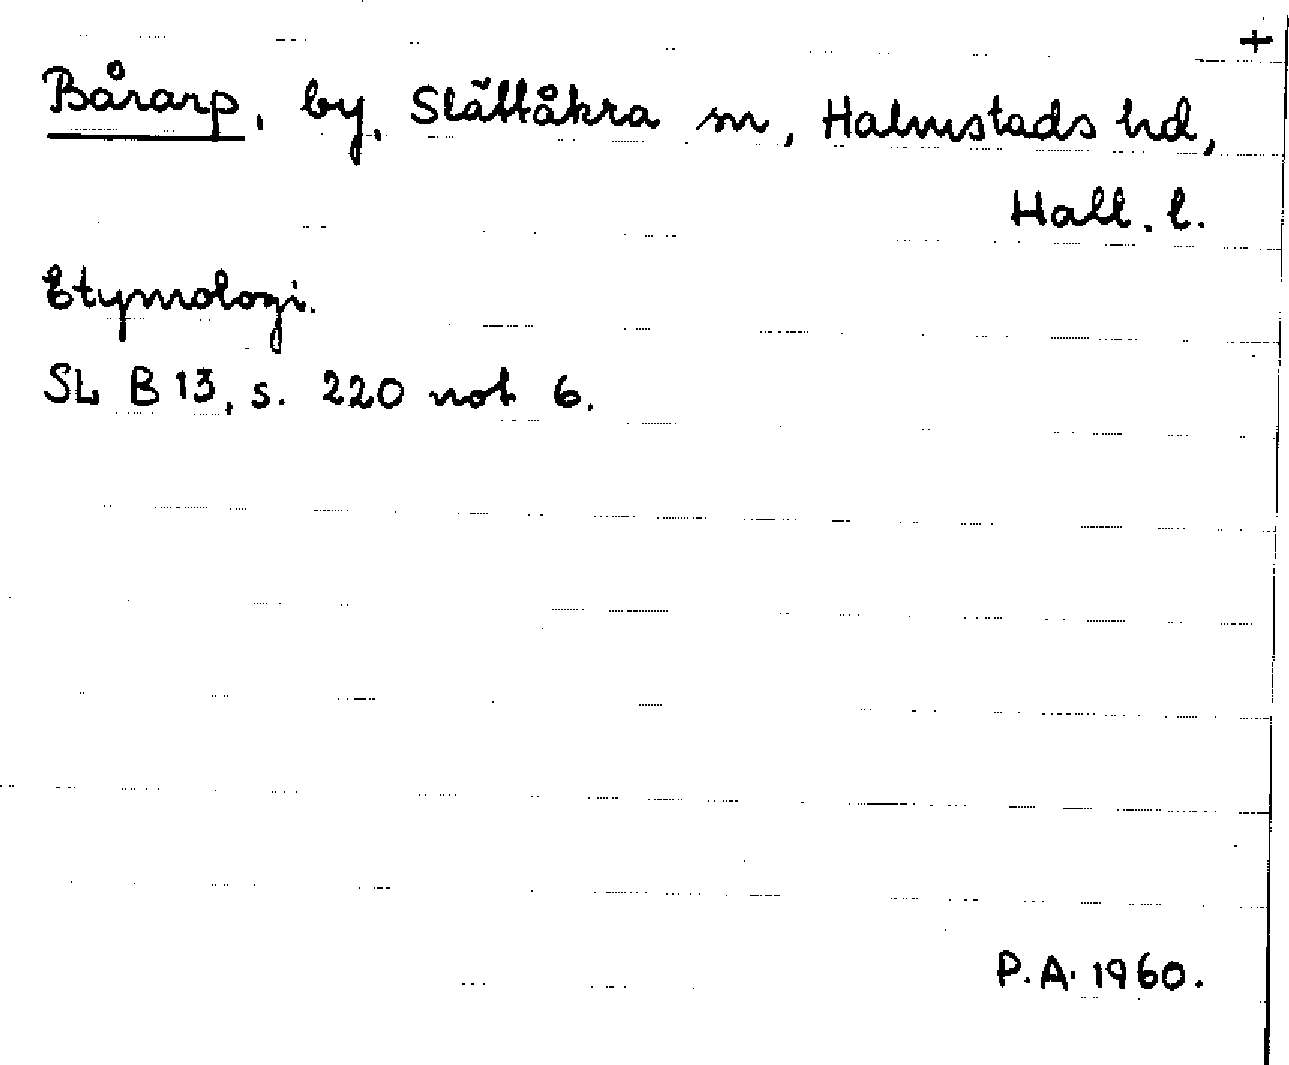 +
Bårarp, by, Slättåkra sn, Halmstads hd,
Hall. l.
Etymologi.
SL B 13, s. 220 not 6.
P.A. 1960.